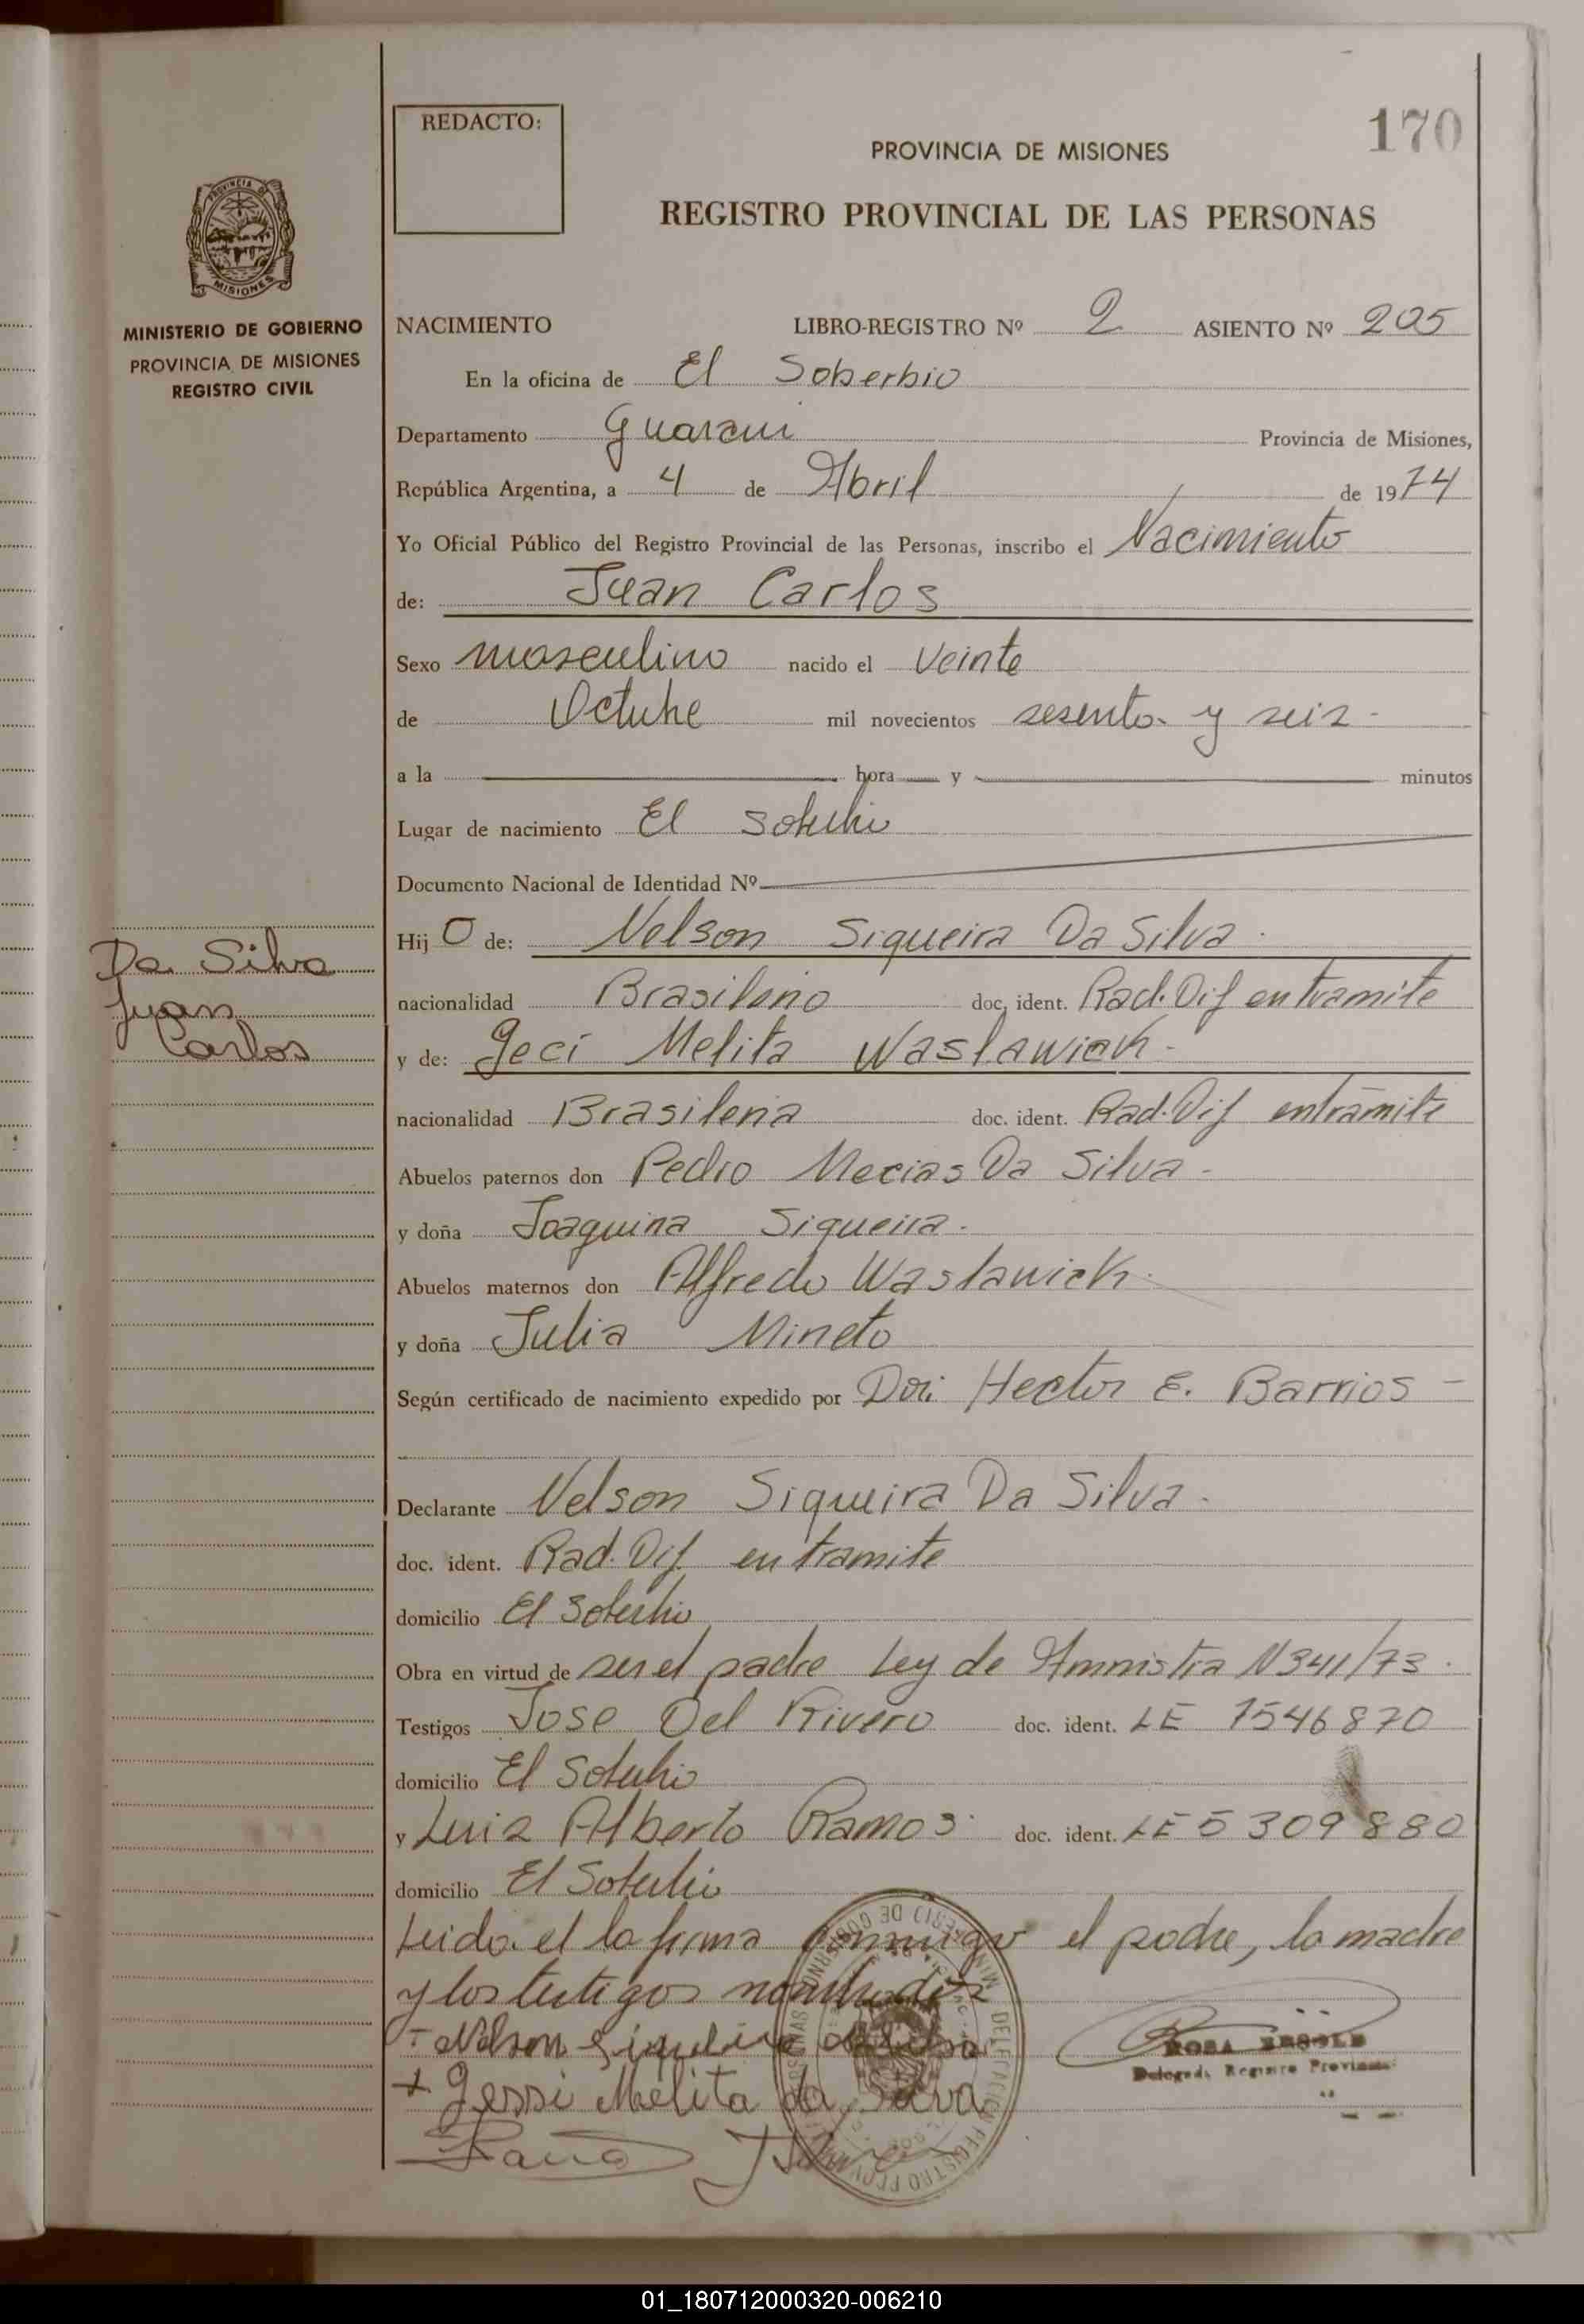 170
REDACTO:
PROVINCIA DE MISIONES
REGISTRO PROVINCIAL DE LAS PERSONAS
PROVINCIA DE
MISIONES
MINISTERIO DE GOBIERNO
PROVINCIA DE MISIONES
REGISTRO CIVIL
NACIMIENTO LIBRO-REGISTRO Nº 2 ASIENTO Nº 205
En la oficina de El Soberbio
Departamento Guarani Provincia de Misiones,
República Argentina, a 4 de Abril de 1974
Yo Oficial Público del Registro Provincial de las Personas, inscribo el Nacimiento
de: Juan Carlos
Sexo masculino nacido el Veinte
de Octubre mil novecientos sesenta y seis -
a la hora y minutos
Lugar de nacimiento El Soberbio
Documento Nacional de Identidad Nº
Hij O de: Nelson Siqueira Da Silva.
Da Silva
Juan
Carlos
nacionalidad Brasileño doc. ident. Rad. Dif en tramite
y de: Geci Melita Waslawick -
nacionalidad Brasileña doc. ident. Rad. Dif en tramite
Abuelos paternos don Pedro Mecias Da Silva -
y doña Joaquina Siqueira.
Abuelos maternos don Alfredo Waslawick.
y doña Julia Mineto
Según certificado de nacimiento expedido por Dr: Hector E. Barrios -
Declarante Nelson Siqueira Da Silva.
doc. ident. Rad. Dif en tramite
domicilio El Soberbio
Obra en virtud de ser el padre Ley de Amnistia N 341/73.
Testigos Jose Del Rivero doc. ident. LE 7546870
domicilio El Soberbio
y Luis Alberto Ramos. doc. ident. LE 5 309 880
domicilio El Soberbio
Leida el la firma conmigo el padre, la madre
y los testigos nombrados
Nelson Siqueira da Silva
+ Gessi Melita da Silva
ROSA
Delegada Registro Provincial
01_180712000320-006210